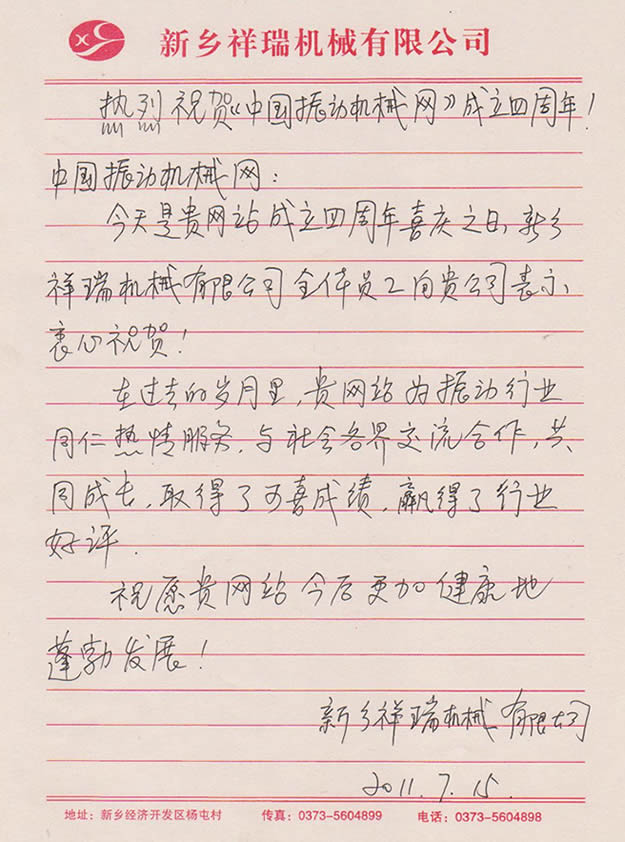 新乡祥瑞机械有限公司
热烈祝贺《中国振动机械网》成立四周年！
中国振动机械网：
今天是贵网站成立四周年喜庆之日，新乡
祥瑞机械有限公司全体员工向贵公司表示
衷心祝贺！
在过去的岁月里，贵网站为振动行业
同仁热情服务，与社会各界交流合作，共
同成长，取得了可喜成绩，赢得了行业
好评.
祝愿贵网站今后更加健康地
蓬勃发展！
新乡祥瑞机械有限公司
2011.7.15.
地址：新乡经济开发区杨屯村 传真：0373-5604899 电话：0373-5604898